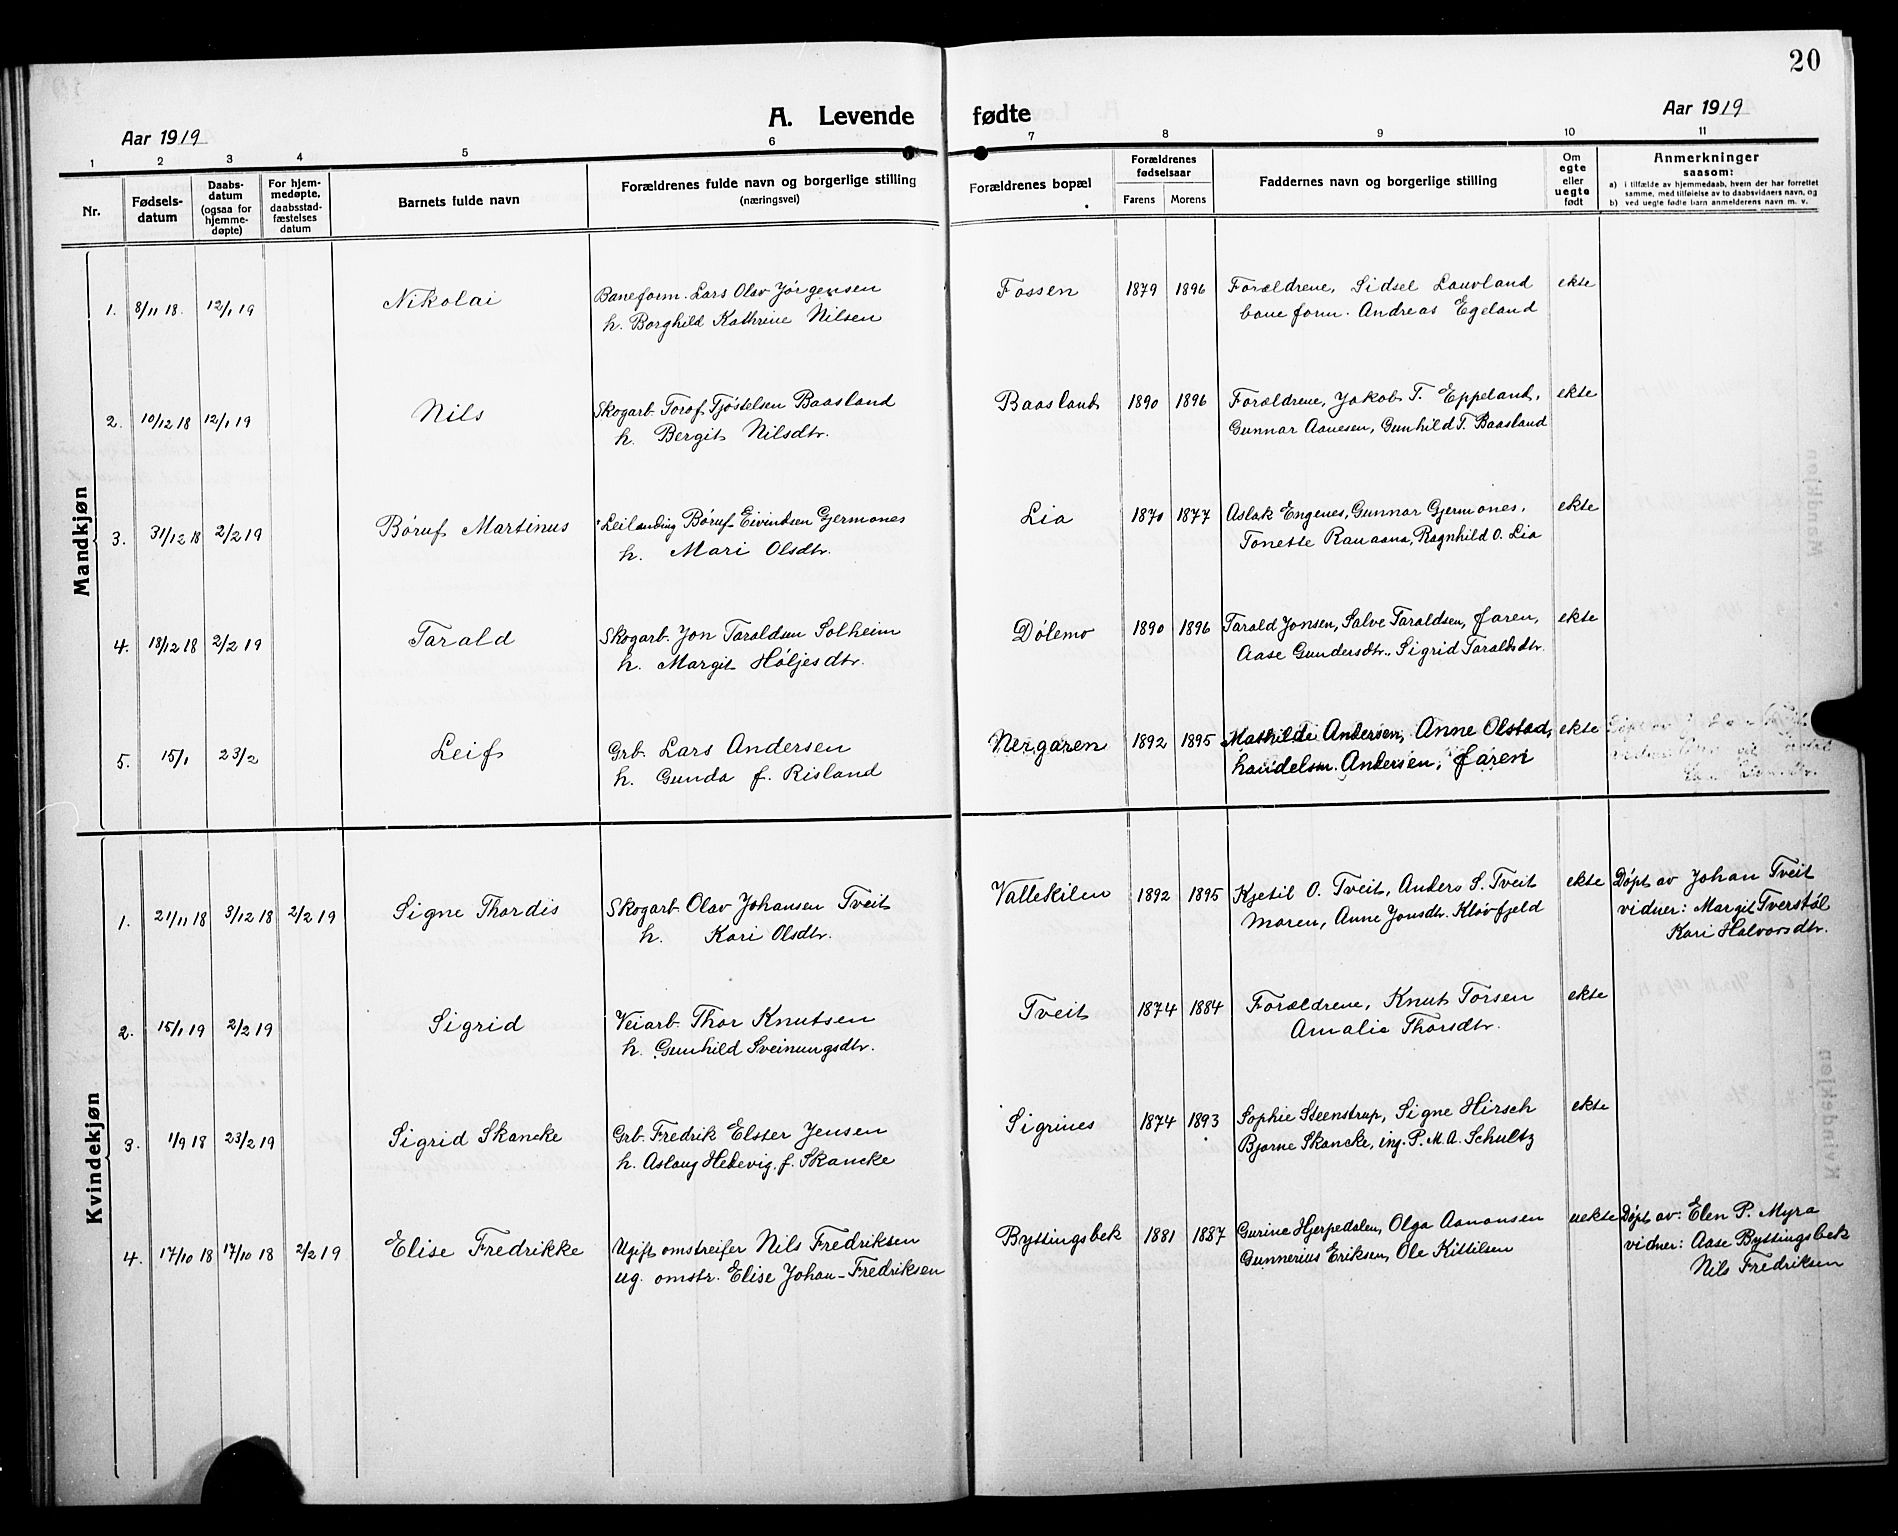 20
A. Levende fødte
Aar 1919
Aar 1919
1 2 3 4 5 6 7 8 9 10 11
Nr.
Fødsels-
datum
Daabs-
datum
(ogsaa for
hjemme-
døpte)
For hjem-
medøpte,
daabsstad-
fæstelses
datum
Barnets fulde navn
Forældrenes fulde navn og borgerlige stilling
(næringsvei)
Forældrenes bopæl
Forældrenes
fødselsaar
Farens Morens
Faddernes navn og borgerlige stilling
Om
egte
eller
uegte
født
Anmerkninger
saasom:
a) i tilfælde av hjemmedaab, hvem der har forrettet
samme, med tilføielse av to daabsvidners navn, og
b) ved uegte fødte barn anmelderens navn m. v.
Mandkjøn
1. 8/11 18. 12/1 19 Nikolai Baneform. Lars Olav Jørgensen Fossen 1879 1896 Forældrene, Sidsel Lauvland ekte
h. Borghild Kathrine Nilsen baneform. Andreas Egeland
2. 10/12 18 12/1 19 Nils Skogarb. Torof Tjøstelsen Baasland Baasland 1890 1896 Forældrene, Jakob T. Eppeland, ekte
h. Bergit Nilsdtr. Gunnar Aanesen, Gunhild T. Baasland
3. 31/12 18 2/2 19 Børuf Martinus Leilending Børuf Eivindsen Gjermones Lia 1870 1877 Aslak Engenes, Gunnar Gjermones, ekte
h. Mari Olsdtr. Tonette Ranaana, Ragnhild O. Lia
4. 18/12 18 2/2 19 Tarald Skogarb. Jon Taraldsen Solheim Dølemo 1890 1896 Tarald Jonsen, Salve Taraldsen, faren, ekte
h. Margit Høljesdtr. Aase Gundersdtr., Sigrid Taraldsdtr.
5. 15/1 23/2 Leif Grb. Lars Andersen Nergaren 1892 1895 Mathilde Andersen, Anne Olstad, ekte
h. Gunda f. Risland handelsm. Andersen, faren
Kvindekjøn
1. 21/11 18 3/12 18 2/2 19 Signe Thordis Skogarb. Olav Johansen Tveit Vallekilen 1892 1895 Kjetil O. Tveit, Anders S. Tveit ekte Døpt av Johan Tveit
h. Kari Olsdtr. moren, Anne Jonsdtr. Kløvfjeld vidner: Margit Tverstøl
Kari Halvorsdtr.
2. 15/1 19 2/2 19 Sigrid Veiarb. Thor Knutsen Tveit 1874 1884 Forældrene, Knut Torsen ekte
h. Gunhild Sveinungsdtr. Amalie Thorsdtr.
3. 1/9 18 23/2 19 Sigrid Skancke Grb. Fredrik Elster Jensen Sigrines 1874 1893 Sophie Steenstrup, Signe Hirsch ekte
h. Aslaug Hedevig f. Skancke Bjarne Skancke, ing. P. M. A. Schultz
4. 17/10 18 17/10 18 2/2 19 Elise Fredrikke Ugift omstreifer Nils Fredriksen Byttingsbek 1881 1887 Gurine Hjerpedalen, Olga Aanonsen uekte Døpt av: Elen P. Myra
ug. omstr. Elise Johan-Fredriksen Gunnerius Eriksen, Ole Kittilsen vidner: Aase Byttingsbek
Nils Fredriksen